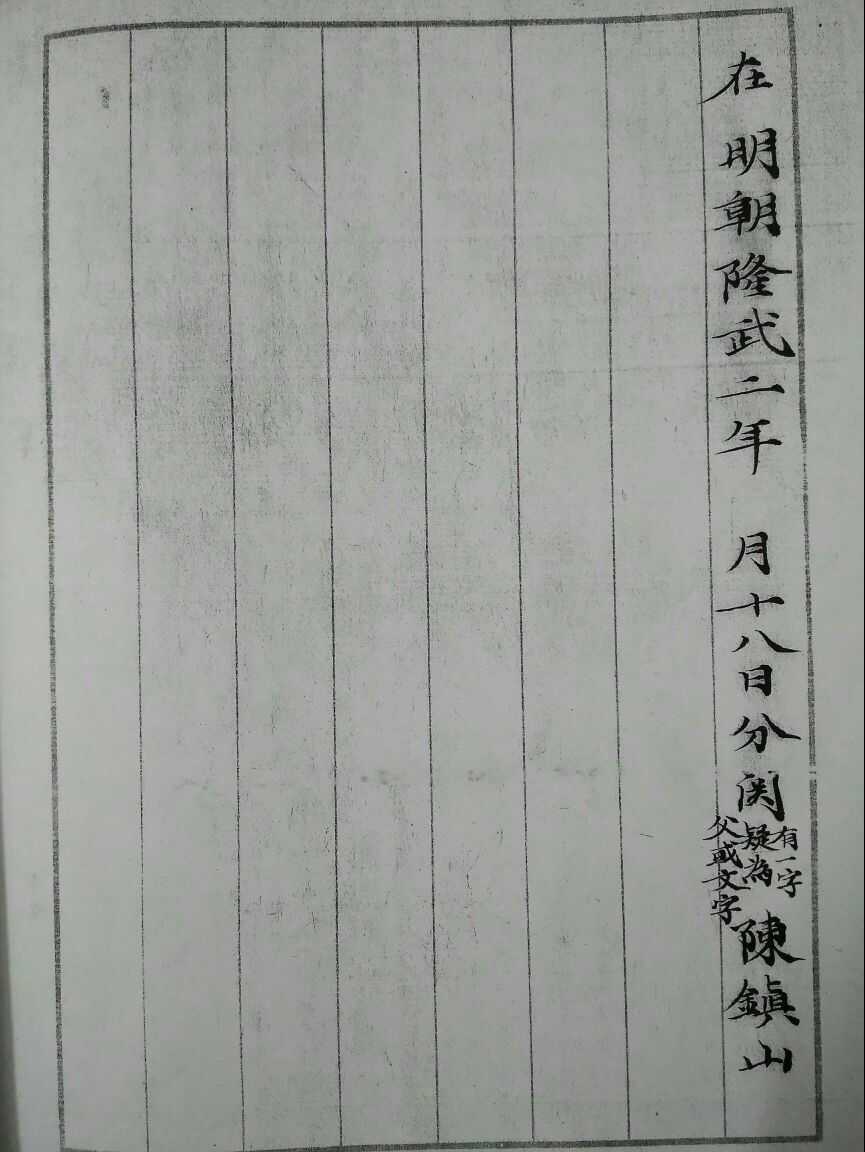 在明朝隆武二年 月十八日分関有一字疑為父或文字陳鎮山